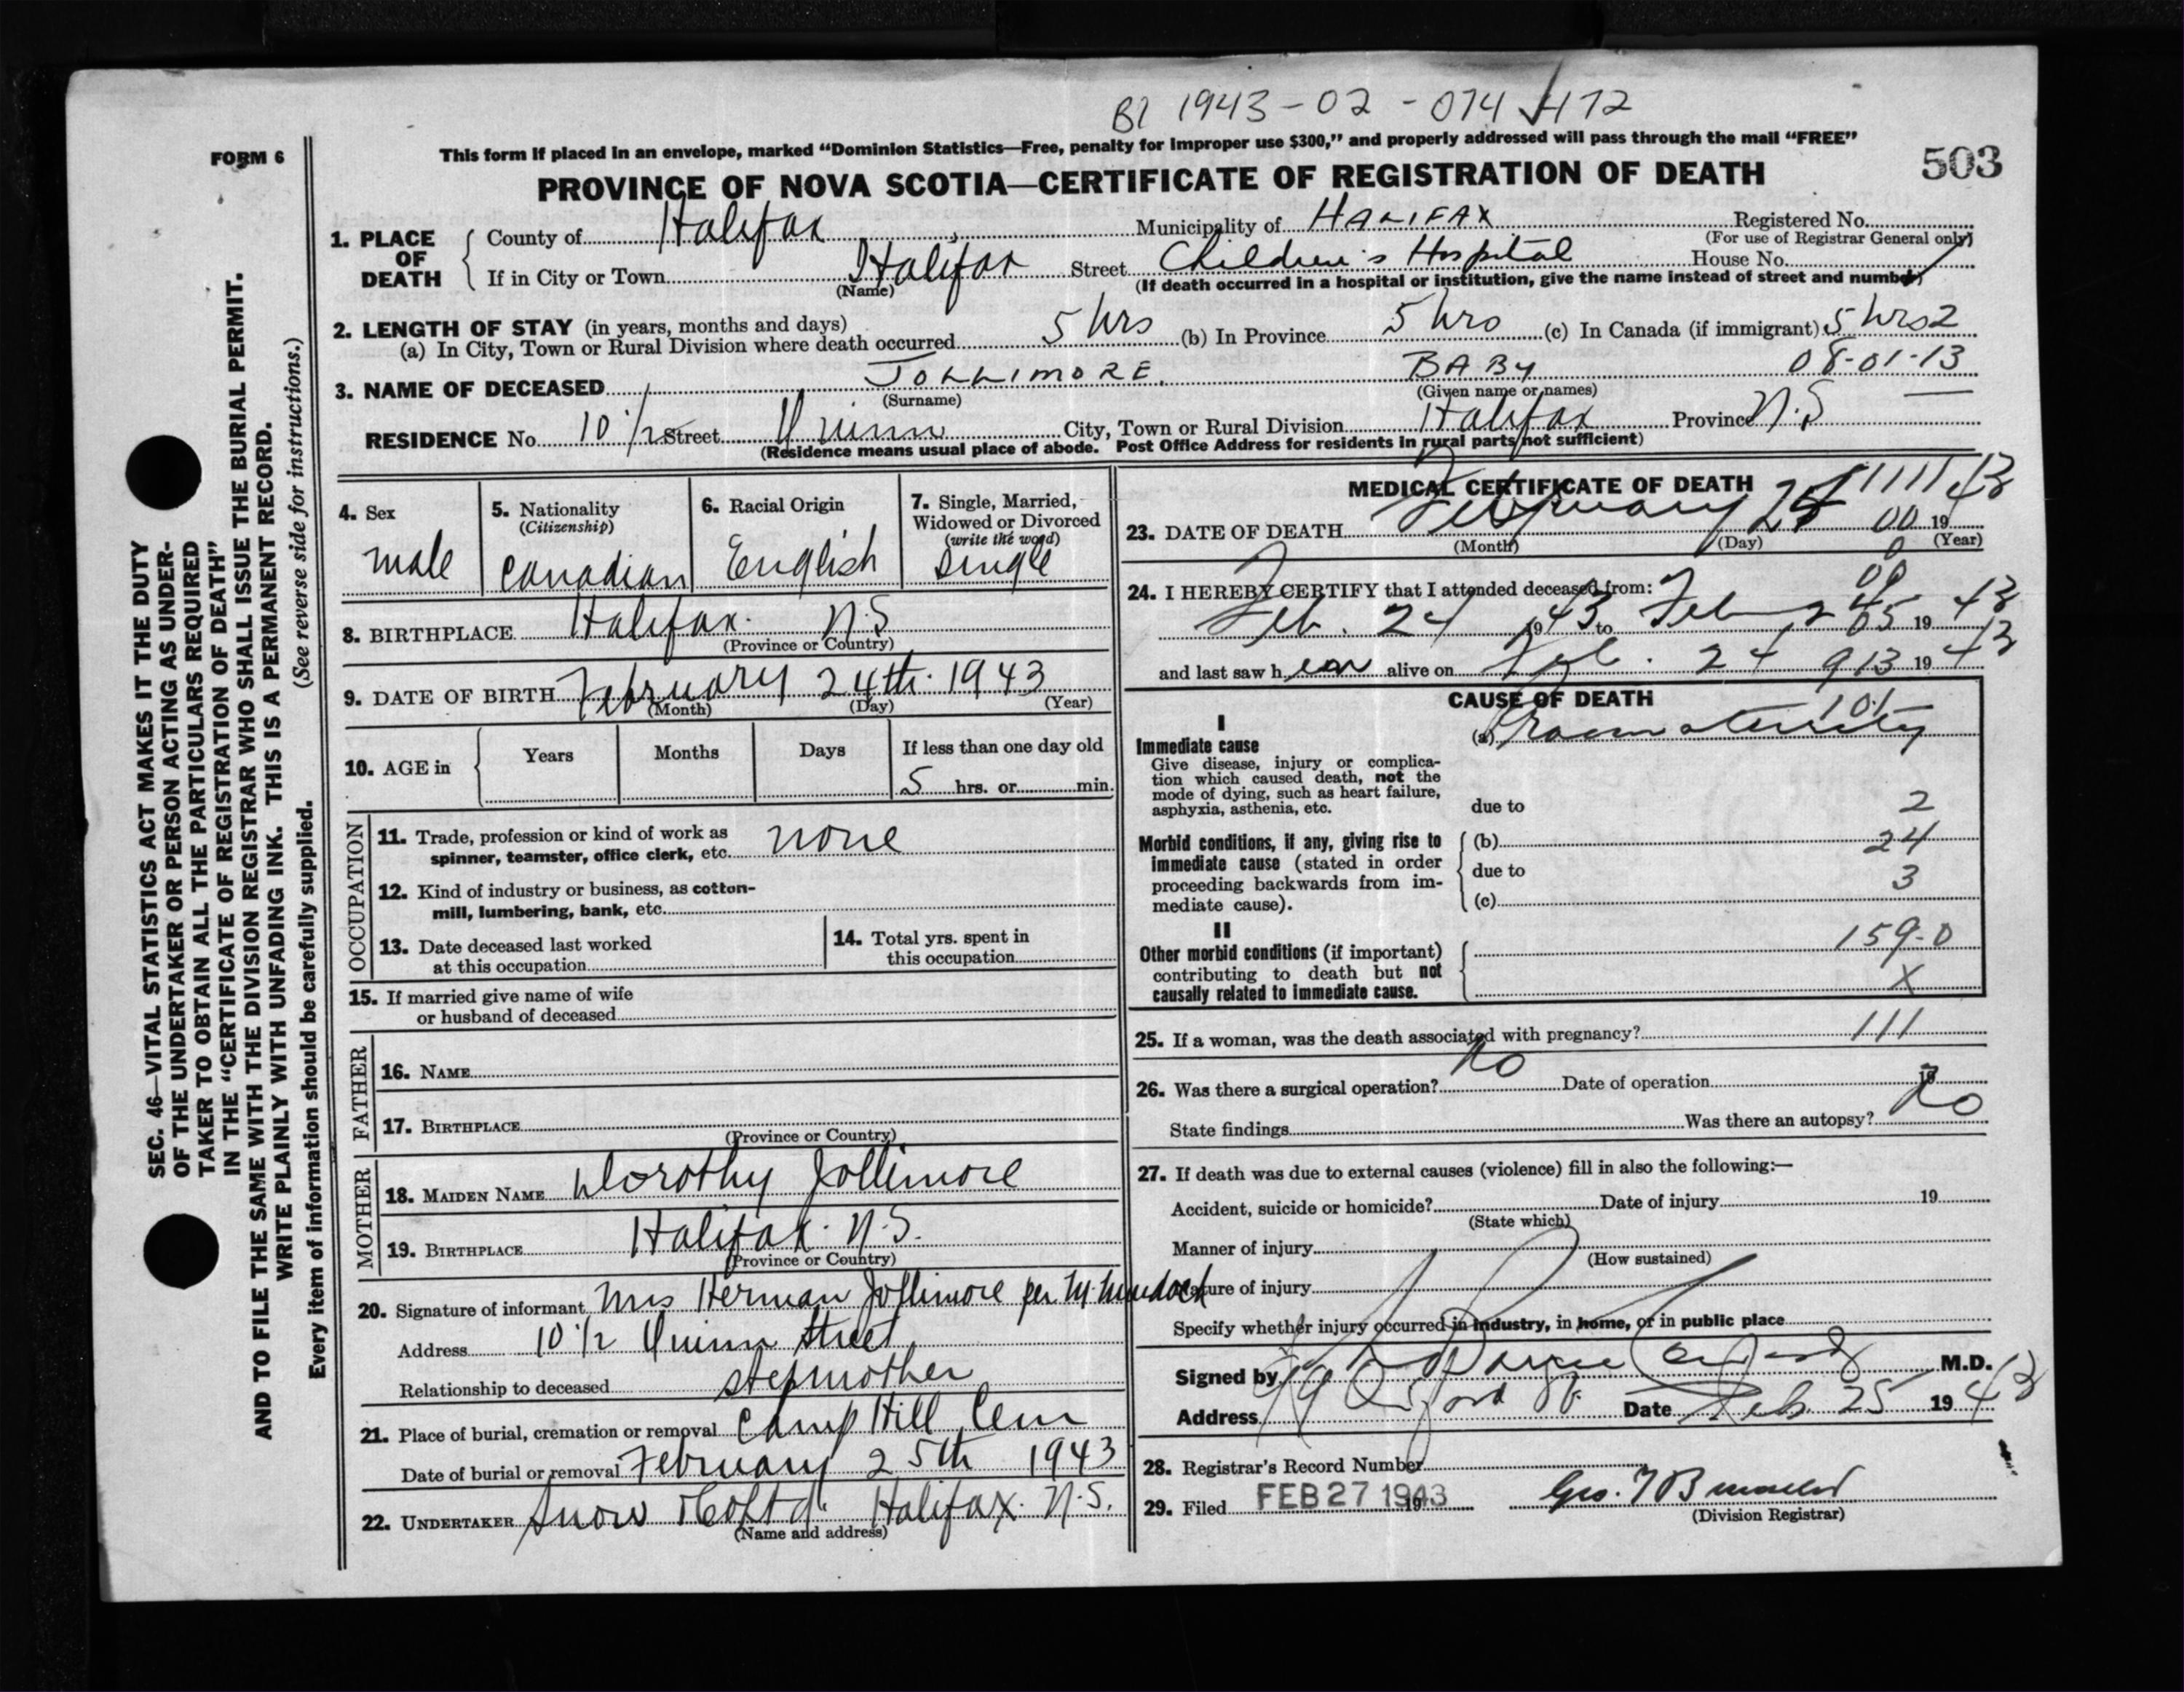 B1 1943-02-074472
This form if placed in an envelope, marked "Dominion Statistics—Free, penalty for improper use $300," and properly addressed will pass through the mail "FREE"
FORM 6
503
PROVINCE OF NOVA SCOTIA—CERTIFICATE OF REGISTRATION OF DEATH
1. PLACE OF DEATH
County of Halifax Municipality of HALIFAX Registered No.
(For use of Registrar General only)
If in City or Town Halifax Street Children's Hospital House No.
(Name) (If death occurred in a hospital or institution, give the name instead of street and number)
2. LENGTH OF STAY (in years, months and days)
(a) In City, Town or Rural Division where death occurred 5 hrs (b) In Province 5 hrs (c) In Canada (if immigrant) 5 hrs 2
08-01-13
3. NAME OF DECEASED JOLLIMORE, BABY
(Surname) (Given name or names)
RESIDENCE No. 10 1/2 Street Quinn City, Town or Rural Division Halifax Province N.S
(Residence means usual place of abode. Post Office Address for residents in rural parts not sufficient)
4. Sex
male
5. Nationality
(Citizenship)
Canadian
6. Racial Origin
English
7. Single, Married, Widowed or Divorced
(write the word)
Single
8. BIRTHPLACE Halifax. N.S
(Province or Country)
9. DATE OF BIRTH February 24th. 1943
(Month) (Day) (Year)
10. AGE in Years Months Days If less than one day old
5 hrs. or min.
OCCUPATION
11. Trade, profession or kind of work as
spinner, teamster, office clerk, etc. none
12. Kind of industry or business, as cotton-
mill, lumbering, bank, etc.
13. Date deceased last worked
at this occupation
14. Total yrs. spent in
this occupation
15. If married give name of wife
or husband of deceased
FATHER
16. NAME
17. BIRTHPLACE
(Province or Country)
MOTHER
18. MAIDEN NAME Dorothy Jollimore
19. BIRTHPLACE Halifax. N.S.
(Province or Country)
20. Signature of informant Mrs Herman Jollimore per M. Murdock
Address 10 1/2 Quinn Street
Relationship to deceased stepmother
21. Place of burial, cremation or removal Camp Hill Cem
Date of burial or removal February 25th 1943
22. UNDERTAKER Snow & Co Ltd. Halifax. N.S.
(Name and address)
MEDICAL CERTIFICATE OF DEATH
1111
23. DATE OF DEATH February 24 00 1943
(Month) (Day) (Year)
24. I HEREBY CERTIFY that I attended deceased from:
Feb. 24 1943 to Feb 1943
and last saw h alive on Feb. 24 913 1943
CAUSE OF DEATH
101
I
Immediate cause
Give disease, injury or complica-
tion which caused death, not the
mode of dying, such as heart failure,
asphyxia, asthenia, etc.
(a)
due to 2
Morbid conditions, if any, giving rise to
immediate cause (stated in order
proceeding backwards from im-
mediate cause).
(b) 24
due to 3
(c)
II
Other morbid conditions (if important)
contributing to death but not
causally related to immediate cause.
159-0
X
25. If a woman, was the death associated with pregnancy? 111
26. Was there a surgical operation? No Date of operation 19
State findings Was there an autopsy? No
27. If death was due to external causes (violence) fill in also the following:—
Accident, suicide or homicide? Date of injury 19
(State which)
Manner of injury
(How sustained)
Nature of injury
Specify whether injury occurred in industry, in home, or in public place
Signed by M.D.
Address Oxford St. Date Feb. 25 1943
28. Registrar's Record Number
29. Filed FEB 27 1943 Geo.
(Division Registrar)
SEC. 46—VITAL STATISTICS ACT MAKES IT THE DUTY
OF THE UNDERTAKER OR PERSON ACTING AS UNDER-
TAKER TO OBTAIN ALL THE PARTICULARS REQUIRED
IN THE "CERTIFICATE OF REGISTRATION OF DEATH"
AND TO FILE THE SAME WITH THE DIVISION REGISTRAR WHO SHALL ISSUE THE BURIAL PERMIT.
WRITE PLAINLY WITH UNFADING INK. THIS IS A PERMANENT RECORD.
Every item of information should be carefully supplied. (See reverse side for instructions.)